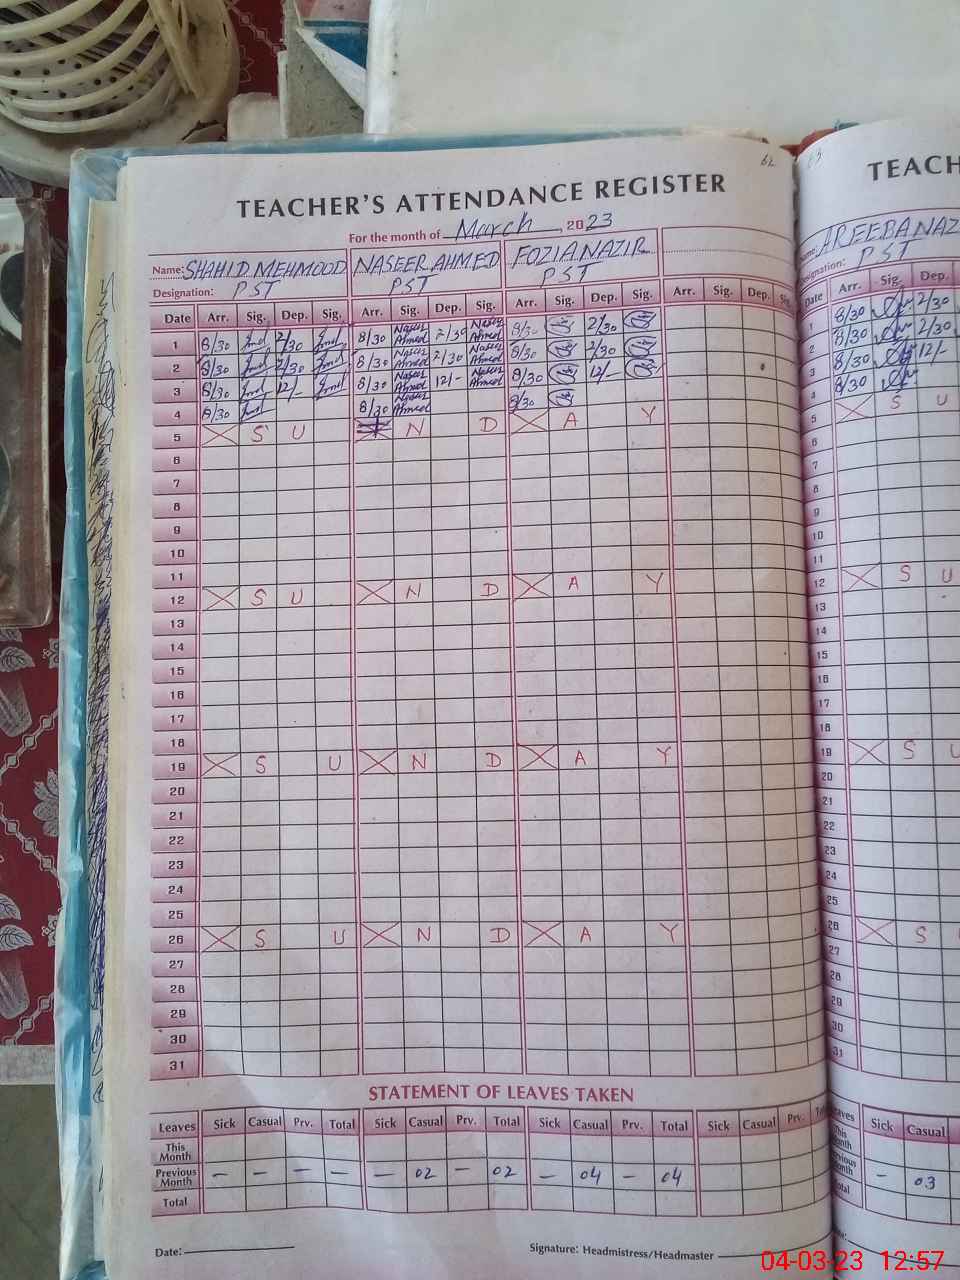 62
TEACHER'S ATTENDANCE REGISTER
For the month of March, 2023
Name: SHAHID MEHMOOD NASEER AHMED FOZIA NAZIR
Designation: PST PST PST
Date Arr. Sig. Dep. Sig. Arr. Sig. Dep. Sig. Arr. Sig. Dep. Sig. Arr. Sig. Dep. Sig.
1 8/30 2/30 8/30 Naseer Ahmed 2/30 Naseer Ahmed 8/30 2/30
2 8/30 2/30 8/30 Naseer Ahmed 2/30 Naseer Ahmed 8/30 2/30
3 8/30 12/- 8/30 Naseer Ahmed 12/- Naseer Ahmed 8/30 12/-
4 8/30 8/30 Naseer Ahmed 8/30
5 S U N D A Y
6
7
8
9
10
11
12 S U N D A Y
13
14
15
16
17
18
19 S U N D A Y
20
21
22
23
24
25
26 S U N D A Y
27
28
29
30
31
STATEMENT OF LEAVES TAKEN
Leaves Sick Casual Prv. Total Sick Casual Prv. Total Sick Casual Prv. Total Sick Casual Prv.
This Month
Previous Month — — — — — 02 — 02 — 04 — 04
Total
Date:
Signature: Headmistress/Headmaster
63
TEACH
Name: AREEBA NAZ
Designation: PST
Date Arr. Sig. Dep.
1 8/30 2/30
2 8/30 2/30
3 8/30 12/-
4 8/30
5 S U
6
7
8
9
10
11
12 S U
13
14
15
16
17
18
19 S U
20
21
22
23
24
25
26 S
27
28
29
30
31
Leaves Sick Casual
This Month
Previous Month — 03
Total
04-03-23 12:57